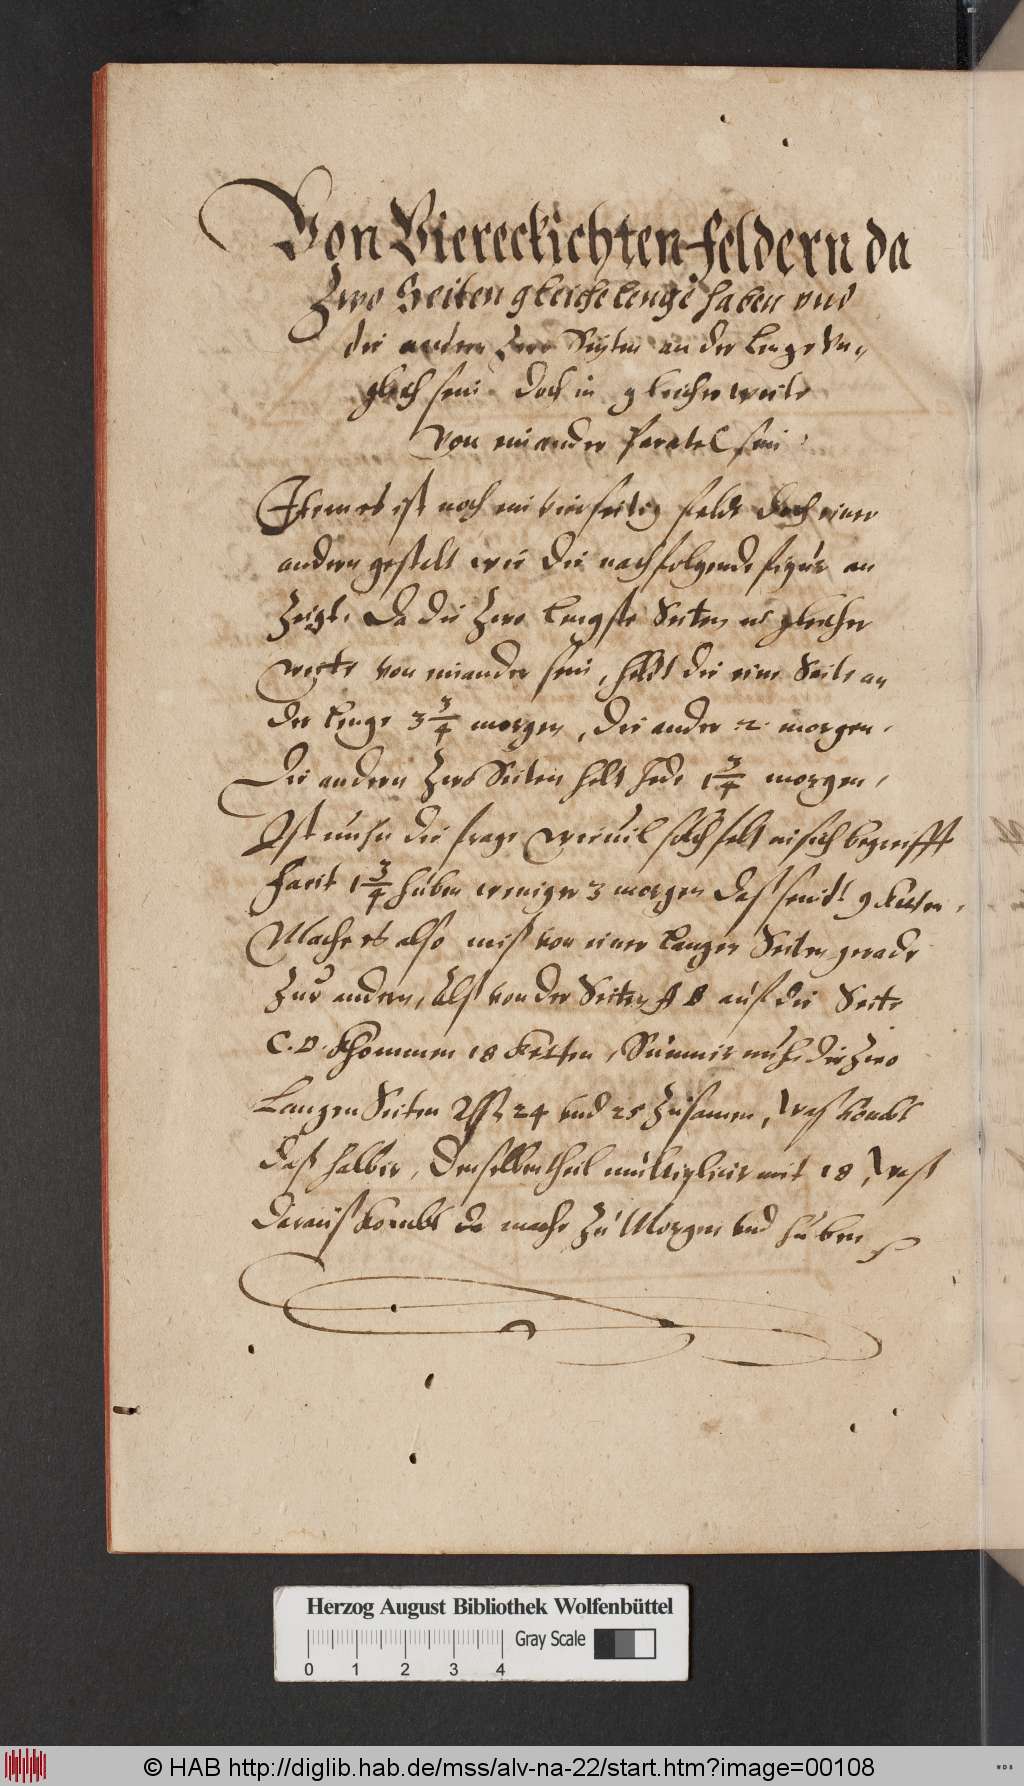 Von Viereckichten feldern da
Zwo Seiten gleiche lenge haben vnd
die andern Zwo Seyten an der lenge vn,
glich sein doch in gleicher weite
von einander Paralel sein:
Item es ist noch ein vierseitig feldt doch einer
andern gestalt wie die nachfolgende figur an
Zeigt, Da die Zwo lengste Seiten in gleicher
weyte von einander sein, heldt die eine Seite an
der lenge 3 3/4 morgen, die ander 2 morgen,
Die andern Zwo Seiten helt jede 1 3/4 morgen,
Ist nuhn die frage wieuil solch felt in sich begreifft
facit 1 3/4 huben weniger 3 morgen das seindt 9 Ketten,
Mache es also miß von einer langen Seiten gerade
Zur andern, Alß von der Seiten A B auf die Seite
C. D. khommen 18 Ketten, Summir nuhn die Zwo
Langen Seiten Alß 24 vnd 25 Zusamen, waß kombt
daß halbir, denselben theil multiplicir mit 18, waß
darauß kombt da mache Zu Morgen vnd huben
Herzog August Bibliothek Wolfenbüttel
Gray Scale
0 1 2 3 4
© HAB http://diglib.hab.de/mss/alv-na-22/start.htm?image=00108